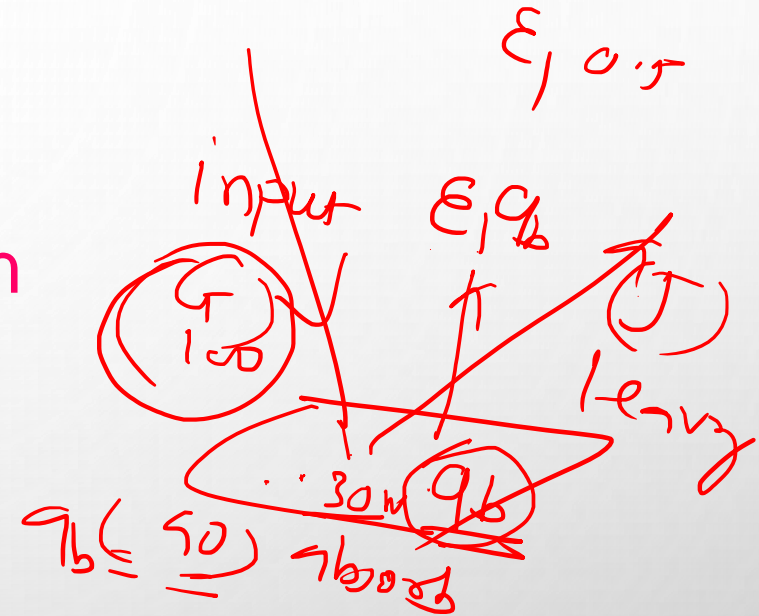 ε, 0.5
input
ε, q_b
n
G
100
J
leavg
30w q_b
q_b (50) absorb